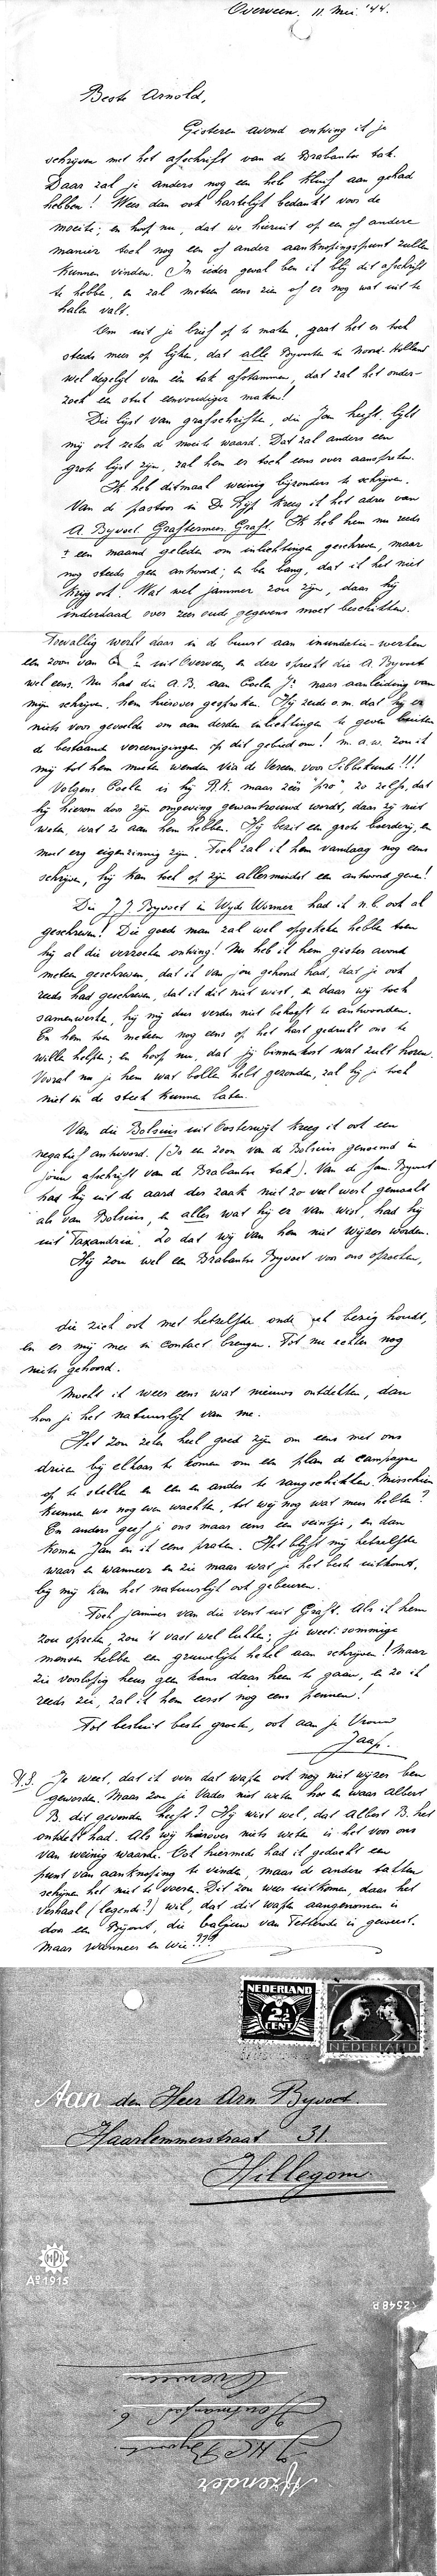 Overveen, 11 Mei '44.
Beste Arnold,
Gisteren avond ontving ik je
schrijven met het afschrift van de Brabantse tak.
Daar zal je anders nog een hele kluif aan gehad
hebben! Wees dan ook hartelijk bedankt voor de
moeite; en hoop nu, dat we hieruit op een of andere
manier toch nog een of ander aanknopingspunt zullen
kunnen vinden. In ieder geval ben ik blij dit afschrift
te hebben, en zal meteen eens zien of er nog wat uit te
halen valt.
Om uit je brief op te maken, gaat het er toch
steeds meer op lijken, dat alle Byvoeten in Noord-Holland
wel degelijk van één tak afstammen, dat zal het onder-
zoek een stuk eenvoudiger maken!
Die lijst van grafschriften, die Jan heeft, lijkt
mij ook zeker de moeite waard. Dat zal anders een
grote lijst zijn, zal hem er toch eens over aanspreken.
Ik heb ditmaal weinig bijzonders te schrijven.
Van de pastoor in De Rijp kreeg ik het adres van
A. Byvoet Graftermeer, Graft. Ik heb hem nu reeds
± een maand geleden om inlichtingen geschreven, maar
nog steeds geen antwoord; en ben bang, dat ik het niet
krijg ook. Wat wel jammer zou zijn, daar hij
inderdaad over zeer oude gegevens moet beschikken.
Toevallig werkt daar in de buurt aan inundatie-werken
een zoon van uit Overveen, en deze spreekt die A. Byvoet
wel eens. Nu had die A.B. aan naar aanleiding van
mijn schrijven, hem hierover gesproken. Hij zeide o.m. dat hij er
niets voor gevoelde om aan derden inlichtingen te geven buiten
de bestaande vereenigingen op dit gebied om! m.a.w. zou ik
mij tot hem moeten wenden via de Vereen. voor Sibbekunde!!!
Volgens is hij R.K. maar zéér "pro", zo zelfs, dat
hij hierom door zijn omgeving gewantrouwd wordt, daar zij niet
weten, wat ze aan hem hebben. Hij bezit een grote boerderij, en
moet erg eigenzinnig zijn. Toch zal ik hem vandaag nog eens
schrijven, hij kan toch op zijn allerminst een antwoord geven!
Die J.J. Byvoet in Wyde Wormer had ik n.l. ook al
geschreven! Die goede man zal wel opgekeken hebben toen
hij al die verzoeken ontving! Nu heb ik hem gister avond
meteen geschreven, dat ik van jou gehoord had, dat je ook
reeds had geschreven, dat ik dit niet wist, en daar wij toch
samenwerken, hij mij dus verder niet behoeft te antwoorden.
En hem toen meteen nog eens op het hart gedrukt ons te
willen helpen; en hoop nu, dat jij binnenkort wat zult horen.
Vooral nu je hem wat bollen hebt gezonden, zal hij je toch
niet in de steek kunnen laten.
Van die Bolsius uit Oosterwijk kreeg ik ook een
negatief antwoord. (Is een zoon van de Bolsius genoemd in
jouw afschrift van de Brabantse tak). Van de fam. Byvoet
had hij uit de aard der zaak niet zo veel werk gemaakt
als van Bolsius, en alles wat hij er van wist, had hij
uit "Taxandria". Zo dat wij van hem niet wijzer worden.
Hij zou wel een Brabantse Byvoet voor ons opzoeken,
die zich ook met hetzelfde bezig houdt,
en er mij mee in contact brengen. Tot nu echter nog
niets gehoord.
Mocht ik weer eens wat nieuws ontdekken, dan
hoor je het natuurlijk van me.
Het zou zeker heel goed zijn om eens met ons
drieën bij elkaar te komen om een plan de campagne
op te stellen en een en ander te rangschikken. Misschien
kunnen we nog even wachten, tot wij nog wat meer hebben?
En anders geef je ons maar eens een seintje, en dan
komen Jan en ik eens praten. Het blijft mij hetzelfde
waar en wanneer en zie maar wat je het beste uitkomt,
bij mij kan het natuurlijk ook gebeuren.
Toch jammer van die vent uit Graft. Als ik hem
zou spreken, zou 't vast wel lukken; je weet: sommige
mensen hebben een gruwelijke hekel aan schrijven! Maar
zie voorlopig heus geen kans daar heen te gaan, en zo ik
reeds zei, zal ik hem eerst nog eens pennen!
Tot besluit beste groeten, ook aan je Vrouw
Jaap.
P.S. Je weet, dat ik over dat wapen ook nog niet wijzer ben
geworden. Maar zou je Vader niet weten hoe en waar Albert
B. dit gevonden heeft? Hij wist wel, dat Albert B. het
ontdekt had. Als wij hierover niets weten is het voor ons
van weinig waarde. Ook hiermede had ik gedacht een
punt van aanknoping te vinden, maar de andere takken
schijnen het niet te voeren. Dit zou weer uitkomen, daar het
verhaal (legende?) wil, dat dit wapen aangenomen is
door een Bijvoet, die baljuw van Tetterode is geweest.
Maar wanneer en wie???
NEDERLAND
2½
CENT
C
NEDERLAND
Aan den Heer Arn Byvoet.
Haarlemmerstraat 31.
Hillegom.
MPD
Aº 1915
K2548 R
Afzender
J.H.C. Byvoet.
6.
Overveen